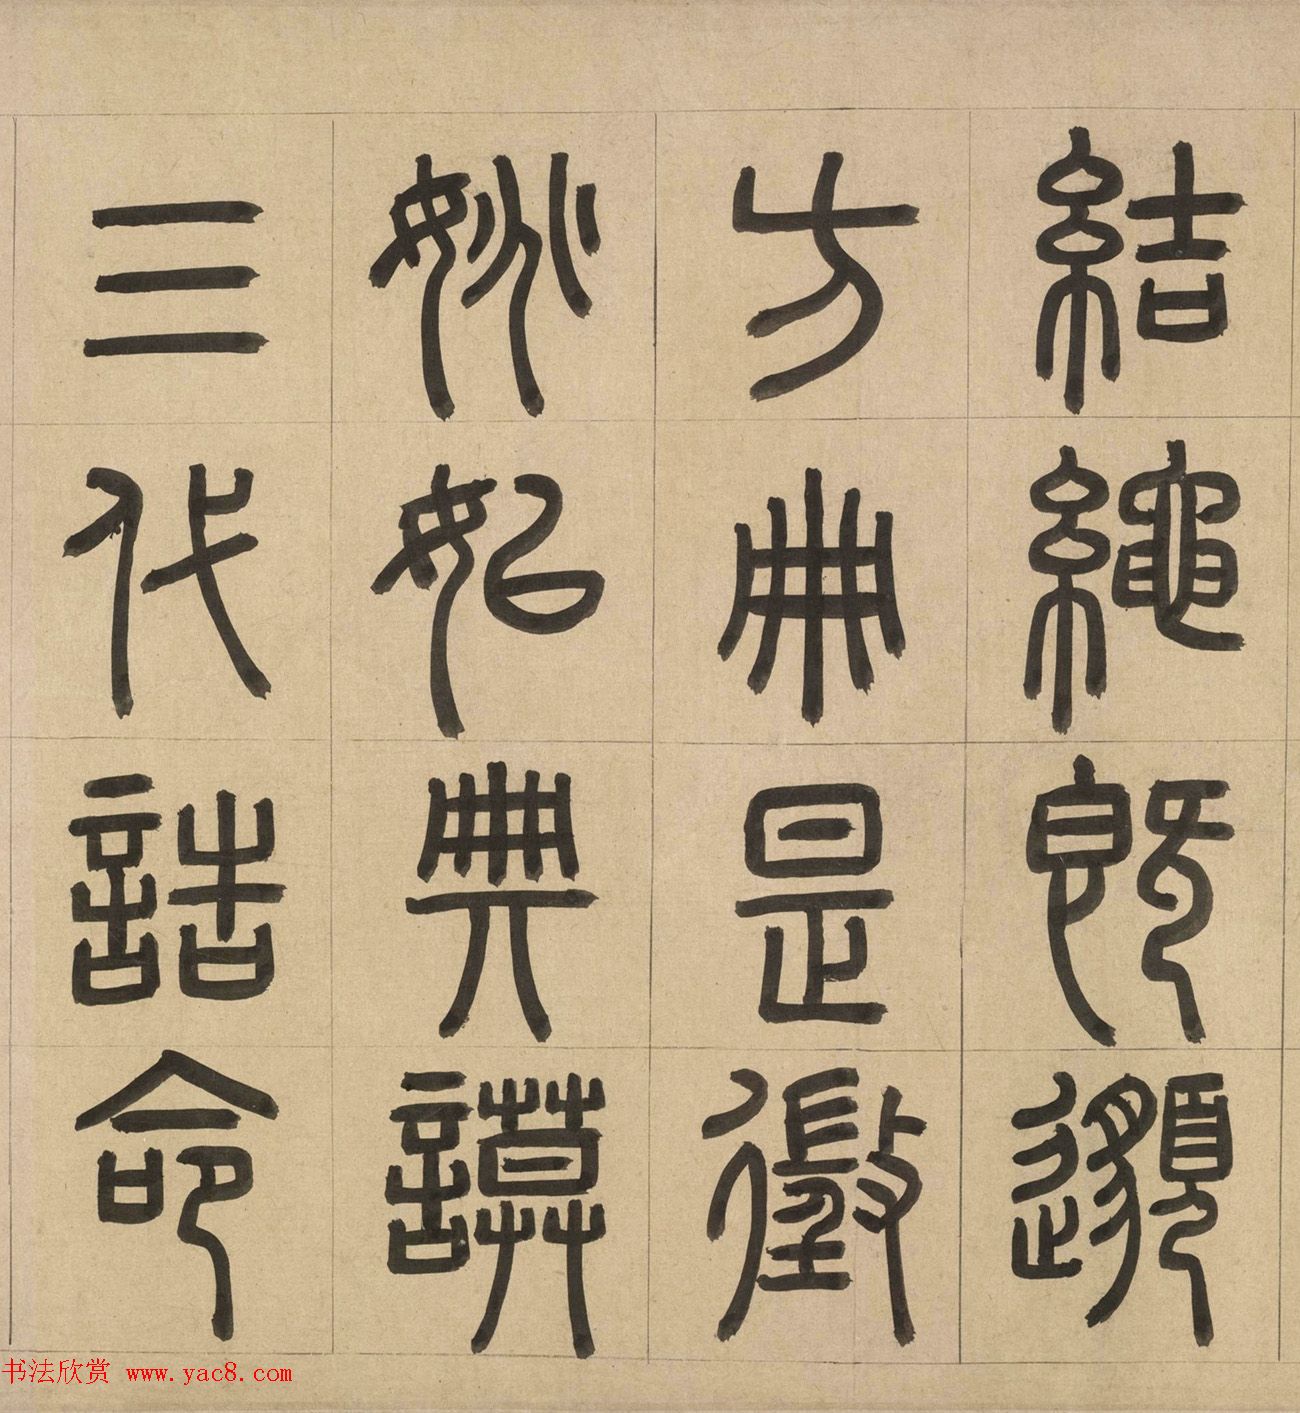 結繩既邈
方冊是徵
姚姒典謨
三代誥命
书法欣赏 www.yac8.com